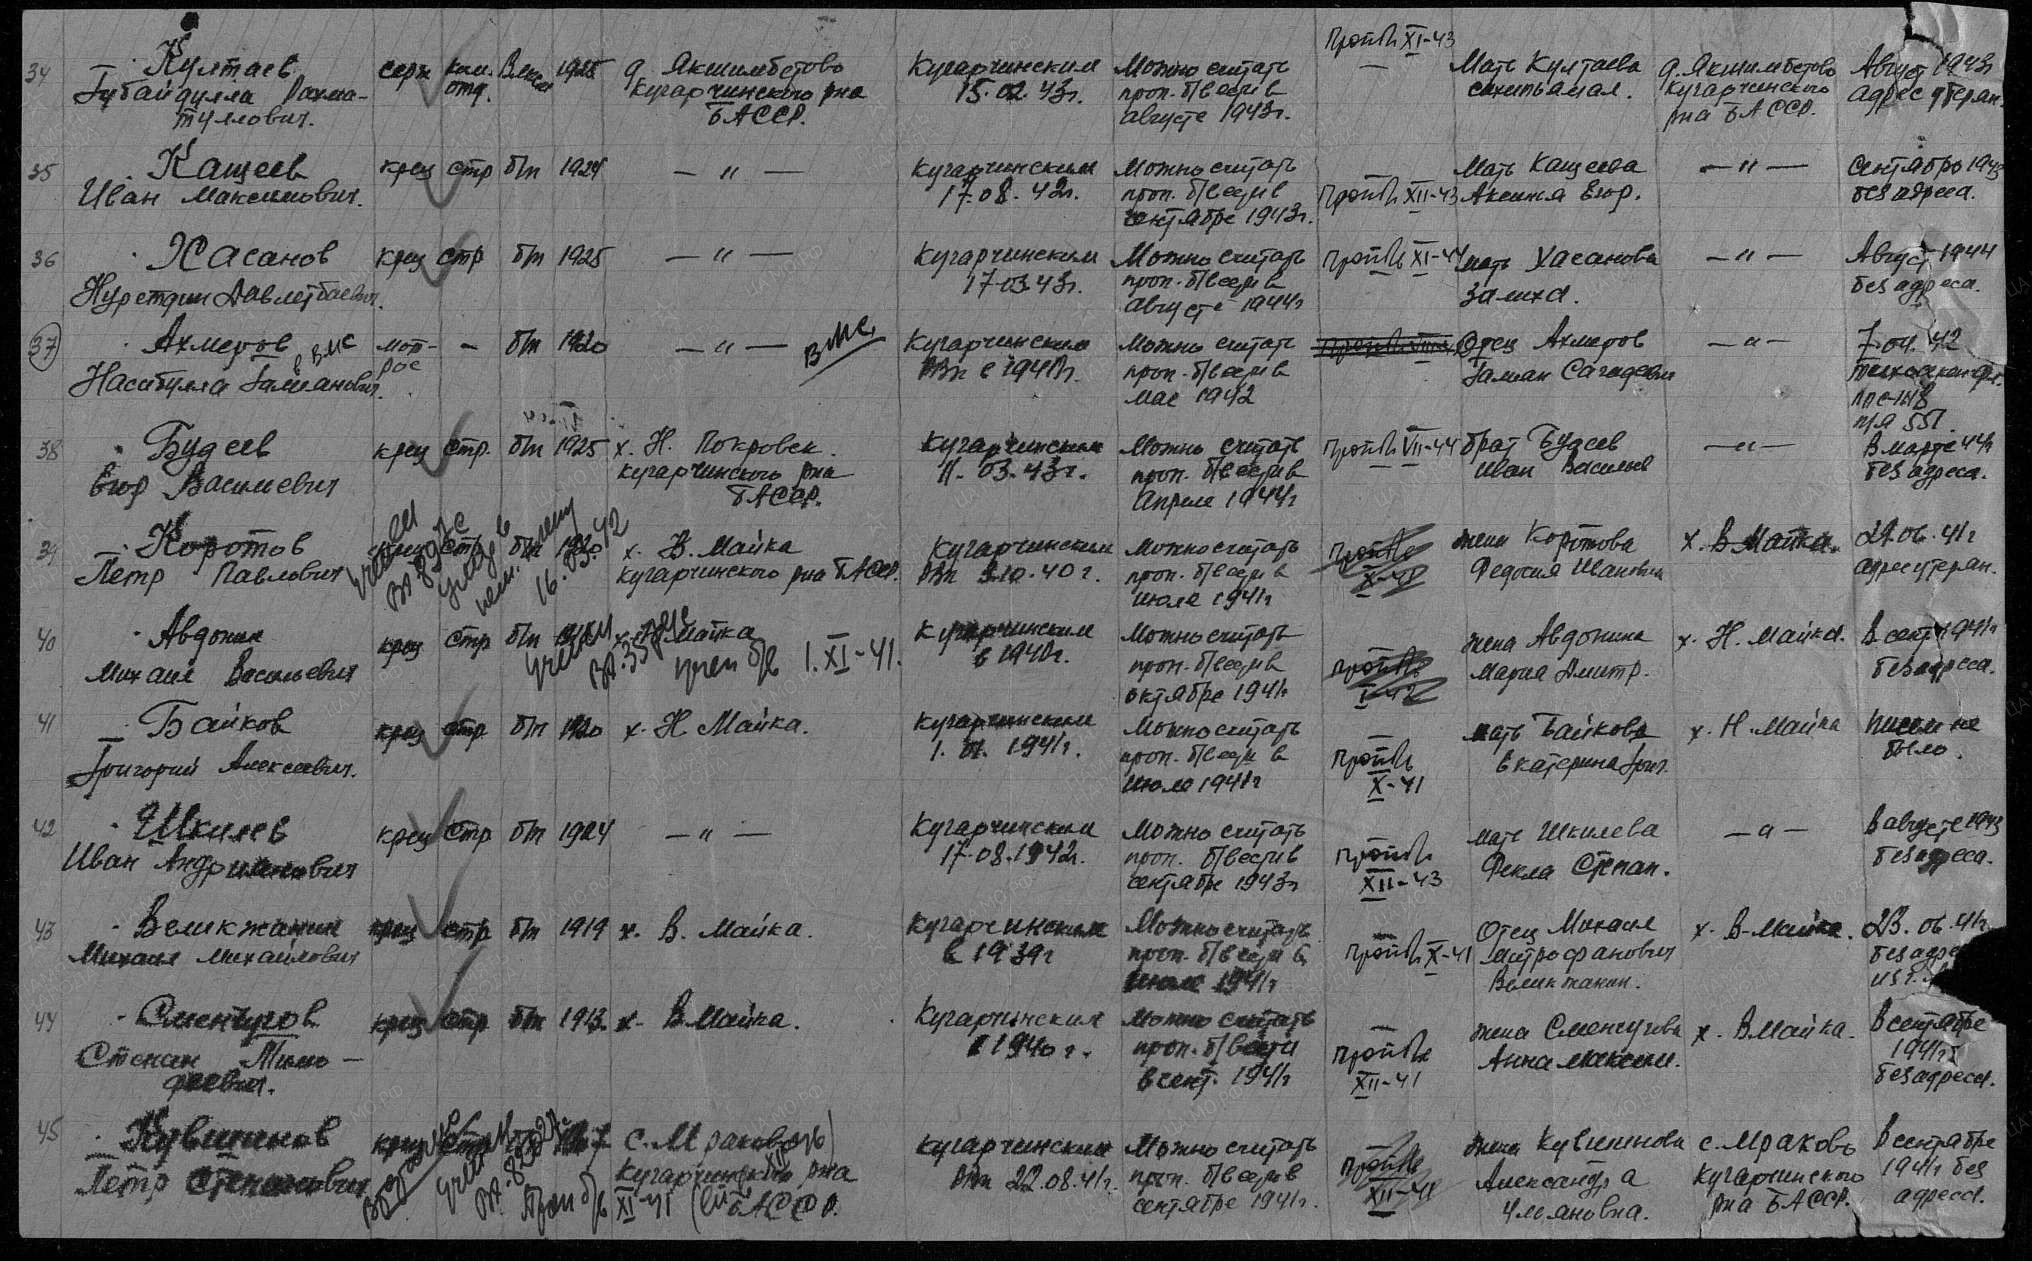 34 Култаев Губайдулла Рахма-
туллович.
серж ком. отд. Влксм 1925 д. Якшимбетово
Кугарчинского рна
БАССР.
Кугарчинским
15.02.43г.
Можно считать
проп. б/вести в
августе 1943г.
проп б/в XI-43
Мать Култаева
д. Якшимбетово
Кугарчинского
рна БАССР.
Август 1943г
адрес утерян.
35 Кащеев
Иван Максимович.
крец стр б/п 1924 — " —
Кугарчинским
17.08.42г.
Можно считать
проп. б/вести в
сентябре 1943г.
проп б/в XII-43
Мать Кащеева
Аксинья Егор.
— " —
Сентябрь 1943
без адреса.
36 Хасанов
Нуретдин Давлетбаевич.
крец стр б/п 1925 — " —
Кугарчинским
17.03.43г.
Можно считать
проп. б/вести в
августе 1944г
проп б/в XI-44
мать Хасанова
Залиха.
— " —
Август 1944
без адреса.
37 Ахмеров
в ВМС
Насибулла Галианович.
мат-
рос
— б/п 1920 — " —
ВМС
Кугарчинским
РВк в 1941г.
Можно считать
проп. б/вести в
мае 1942
Отец Ахмеров
Галиан Сагадеевич
— " —
7.04.42
п/я 551.
38 Будеев
Егор Васильевич
крец стр. б/п 1925 х. Н. Покровск.
Кугарчинского рна
БАССР.
Кугарчинским
11.03.43г.
Можно считать
проп. б/вести в
Апреле 1944г
проп б/в VII-44
брат Будеев
Иван Васильев
— " —
В марте 44г
без адреса.
39 Коротов
Петр Павлович
крец стр б/п 1920 х. В. Майка
Кугарчинского рна БАССР.
учтен
16.03.42
Кугарчинским
РВк 3.10.40г.
Можно считать
проп. б/вести в
июле 1941г
проп б/в
X-41
жена Коротова
Федосия Ивановна
х. В Майка.
22.06.41г
адрес утерян.
40 Авдонин
Михаил Васильевич
крец стр б/п х. Н. Майка
учтен
учтен б/в 1.XI-41.
Кугарчинским
в 1940г.
Можно считать
проп. б/вести в
октябре 1941г
проп б/в
I-42
жена Авдонина
Мария Дмитр.
х. Н. Майка.
В сент 1941г
без адреса.
41 Байков
Григорий Алексеевич.
крец стр б/п 1920 х. Н. Майка.
Кугарчинским
1941г.
Можно считать
проп. б/вести в
июле 1941г
проп б/в
X-41
мать Байкова
Екатерина Григ.
х. Н. Майка
писем не
было.
42 Шкилев
Иван Андриянович
крец стр б/п 1924 — " —
Кугарчинским
17.08.1942г.
Можно считать
проп. б/вести в
сентябре 1943г
проп б/в
XII-43
мать Шкилева
Фекла Степан.
— " —
В августе 1943
без адреса.
43 Великжанин
Михаил Михайлович
крец стр б/п 1919 х. В. Майка.
Кугарчинским
в 1939г
Можно считать
проп. б/вести в
июле 1941г
проп б/в X-41
Отец Михаил
Митрофанович
Великжанин.
х. В-Майка.
23.06.41г.
без адре
44 Сменчугов
Степан Тимо-
феевич.
крец стр б/п 1913. х. В Майка.
Кугарчинским
в 1940г.
Можно считать
проп. б/вести
в сент. 1941г
проп б/в
XII-41
жена Сменчугова
Анна Максим.
х. В Майка.
В сентябре
1941г
без адреса.
45 Кувшинов
Петр Степанович
крец стр с. Мраково
Кугарчинского рна
БАССР.
учтен
Проп б/в XI-41
Кугарчинским
РВк 22.08.41г.
Можно считать
проп. б/вести в
сентябре 1941г.
проп б/в
XII-41
жена Кувшинова
Александра
Ульяновна.
с. Мраково
Кугарчинского
рна БАССР.
В сентябре
1941г без
адреса.